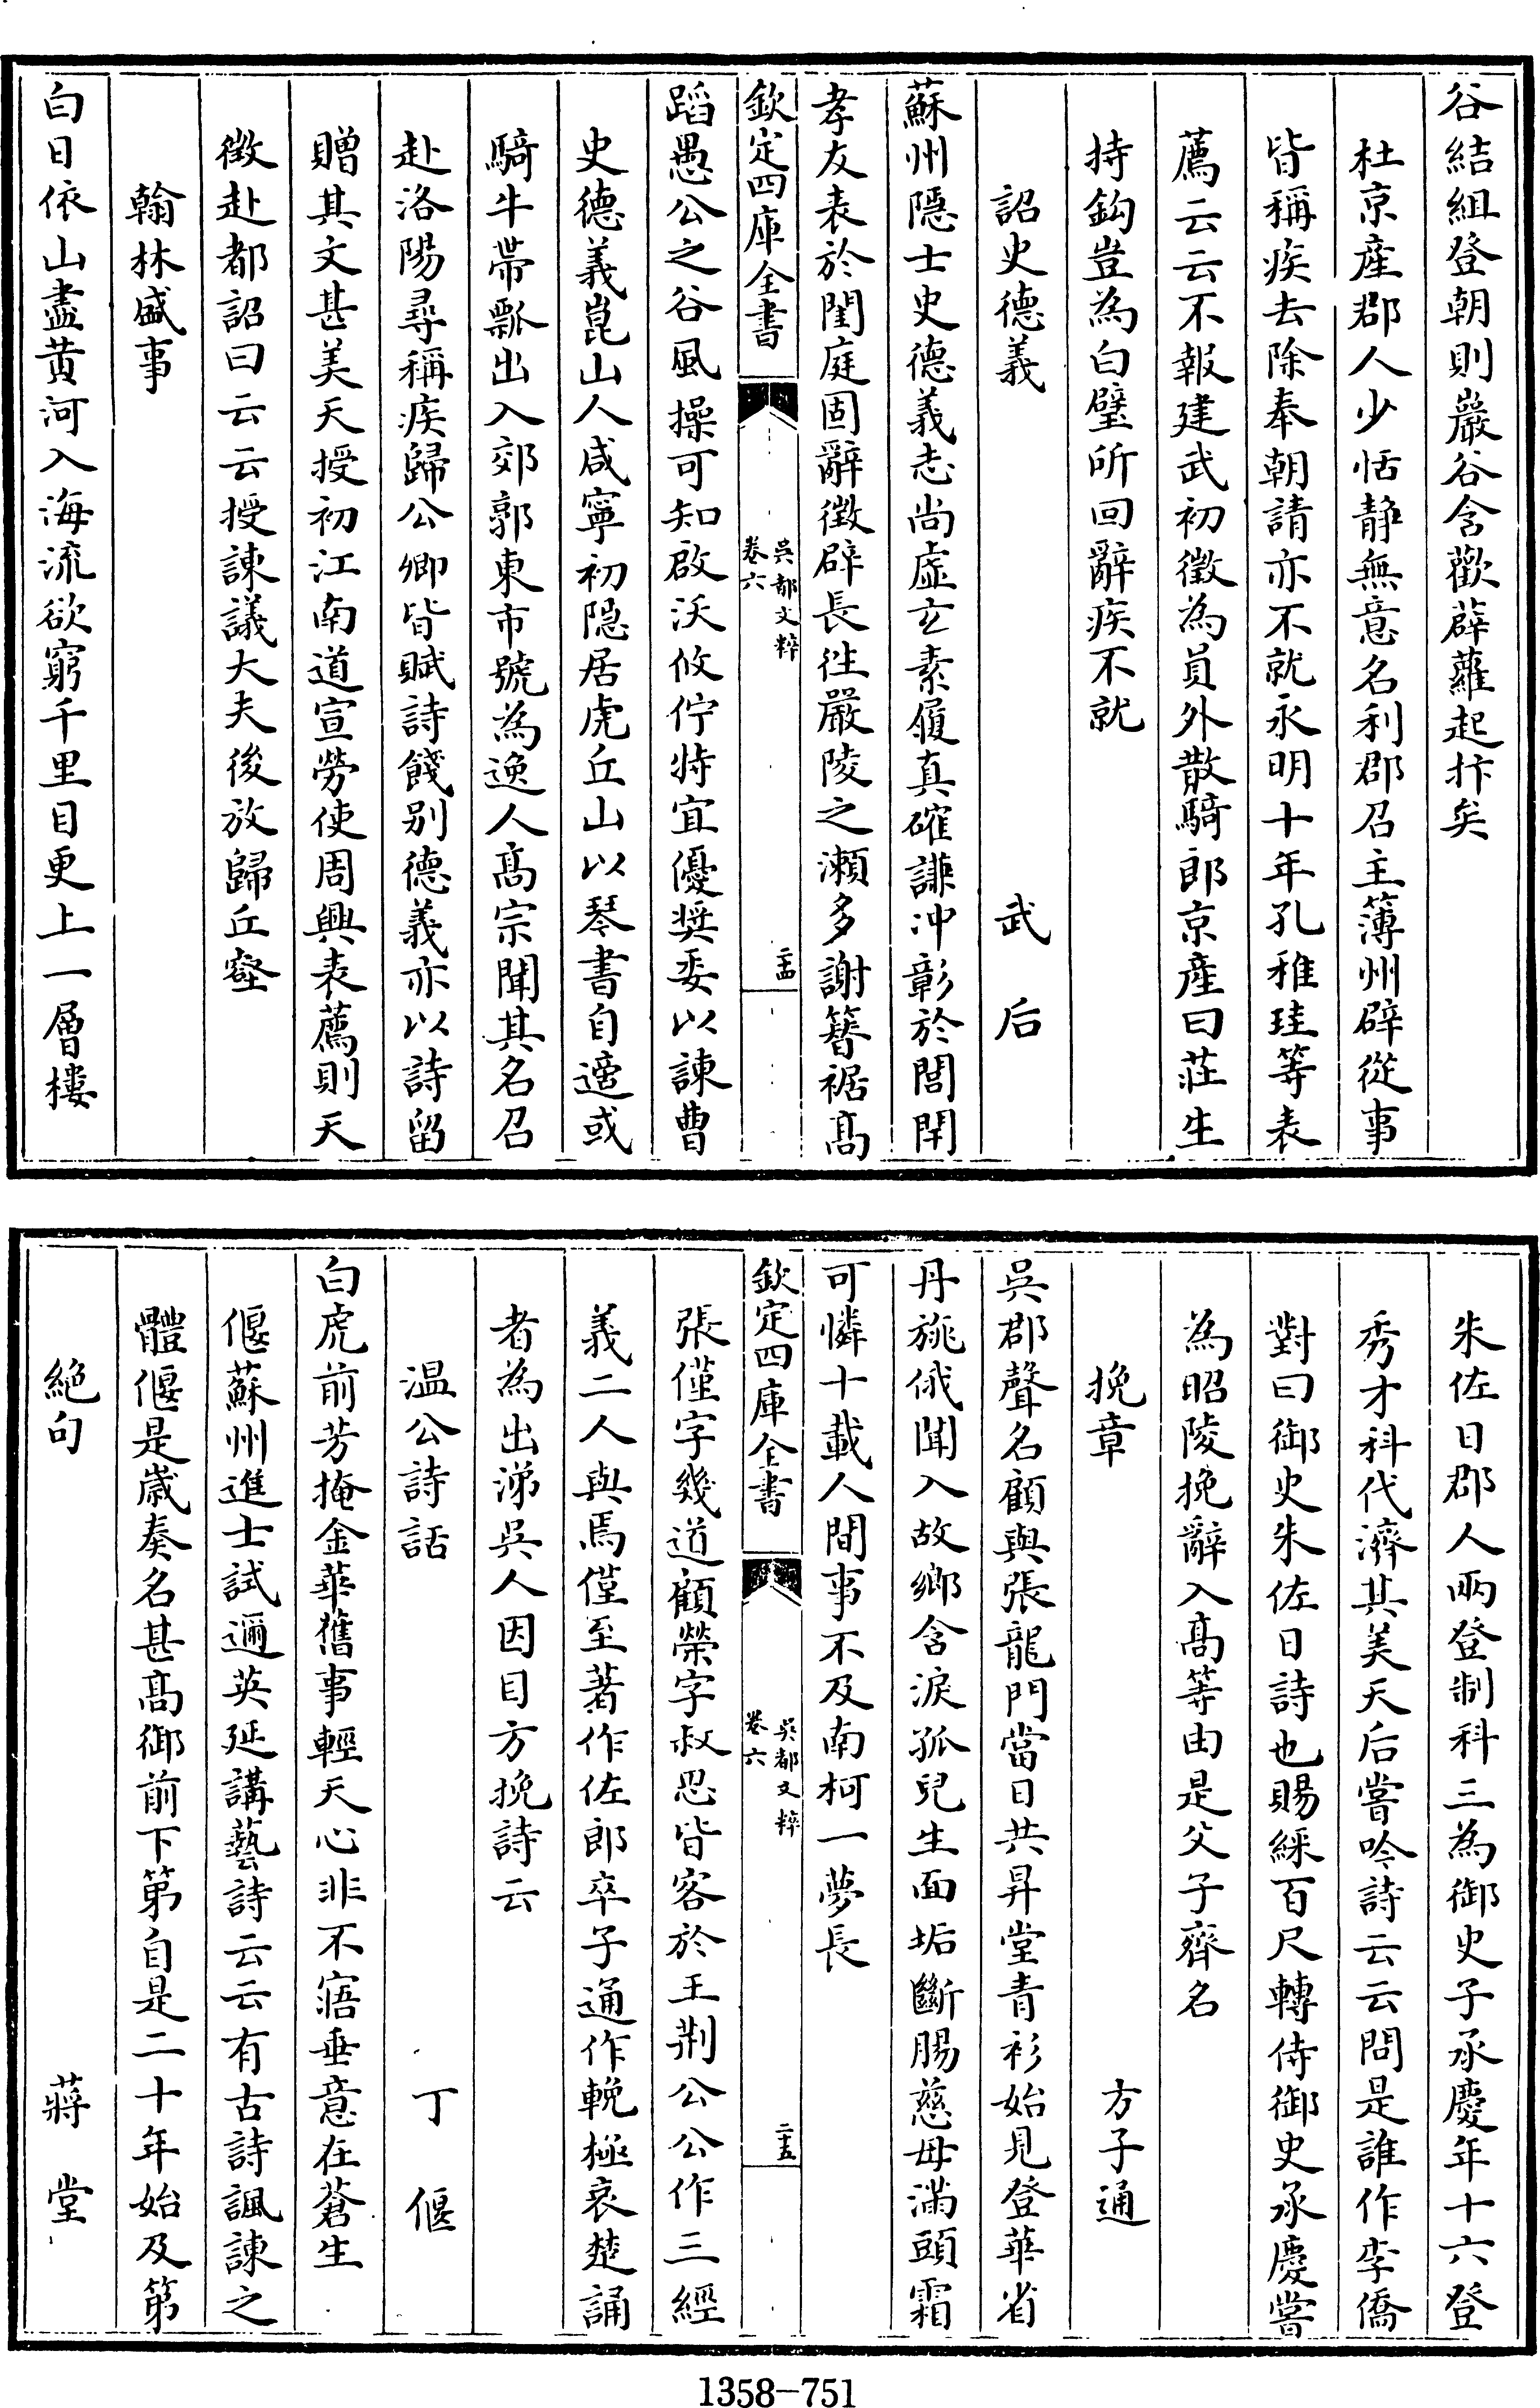 谷結組登朝則巖谷含歡薜蘿起抃矣
杜京產郡人少恬靜無意名利郡召主薄州辟從事
皆稱疾去除奉朝請亦不就永明十年孔稚珪等表
薦云云不報建武初徵為員外散騎郎京產曰莊生
持鈎豈為白璧所回辭疾不就
詔史德義 武后
蘇州隱士史德義志尚虛玄素履真確謙冲彰於閭閈
孝友表於閨庭固辭徵辟長往嚴陵之瀨多謝簪裾高
欽定四庫全書 吳都文粹 卷六 二十四
蹈愚公之谷風操可知啟沃攸佇特宜優奬委以諫曹
史德義崑山人咸寧初隠居虎丘山以琴書自適或
騎牛帶瓢出入郊郭東市號為逸人髙宗聞其名召
赴洛陽尋稱疾歸公卿皆賦詩餞别德義亦以詩留
贈其文甚美天授初江南道宣勞使周興表薦則天
徵赴都詔曰云云授諫議大夫後放歸丘壑
翰林盛事
白日依山盡黄河入海流欲窮千里目更上一層樓
朱佐日郡人兩登制科三為御史子承慶年十六登
秀才科代濟其美天后嘗吟詩云云問是誰作李僑
對曰御史朱佐日詩也賜綵百尺轉侍御史承慶嘗
為昭陵挽辭入髙等由是父子齊名
挽章 方子通
吳郡聲名顧與張龍門當日共昇堂青衫始見登華省
丹旐俄聞入故鄉含淚孤兒生面垢斷腸慈母滿頭霜
可憐十載人間事不及南柯一夢長
欽定四庫全書 吳都文粹 卷六 二十五
張僅字幾道顧榮字叔恩皆客於王荆公公作三經
義二人與焉僅至著作佐郎卒子通作輓極哀楚誦
者為出涕吳人因目方挽詩云
温公詩話 丁偃
白虎前芳掩金華舊事輕天心非不寤垂意在蒼生
偃蘇州進士試邇英延講藝詩云云有古詩諷諫之
體偃是嵗奏名甚髙御前下第自是二十年始及第
絶句 蔣堂
1358-751